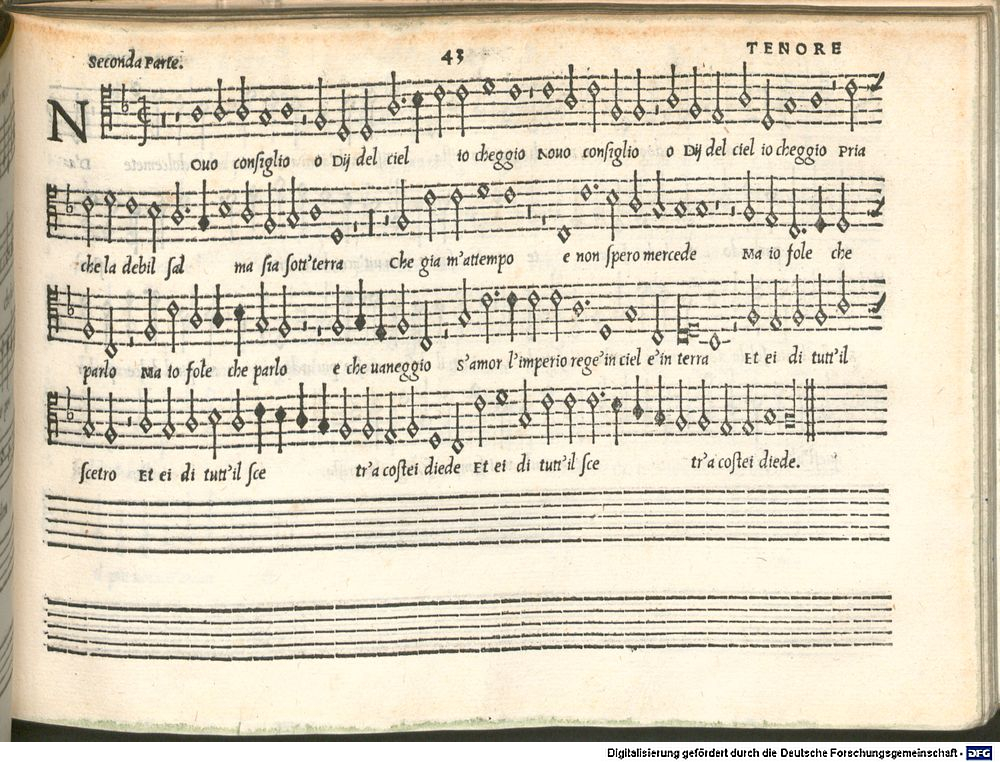 Seconda Parte.
43
TENORE
NOuo consiglio o Dij del ciel io cheggio Nouo consiglio o Dij del ciel io cheggio Pria
che la debil sal ma sia sott'terra Che gia m'attempo e non spero mercede Ma io fole che
parlo Ma io fole che parlo e che uaneggio S'amor l'imperio rege'in ciel e'in terra Et ei di tutt'il
scetro Et ei di tutt'il sce tr'a costei diede Et ei di tutt'il sce tr'a costei diede.
Digitalisierung gefördert durch die Deutsche Forschungsgemeinschaft - DFG